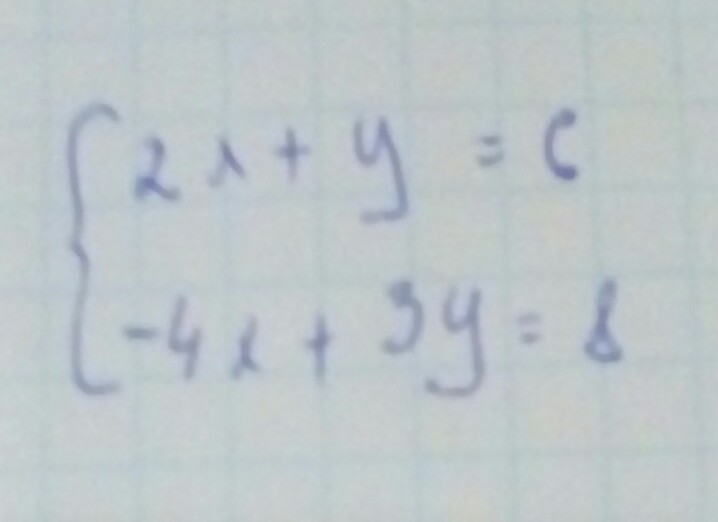 2x + y = 6
-4x + 3y = 8